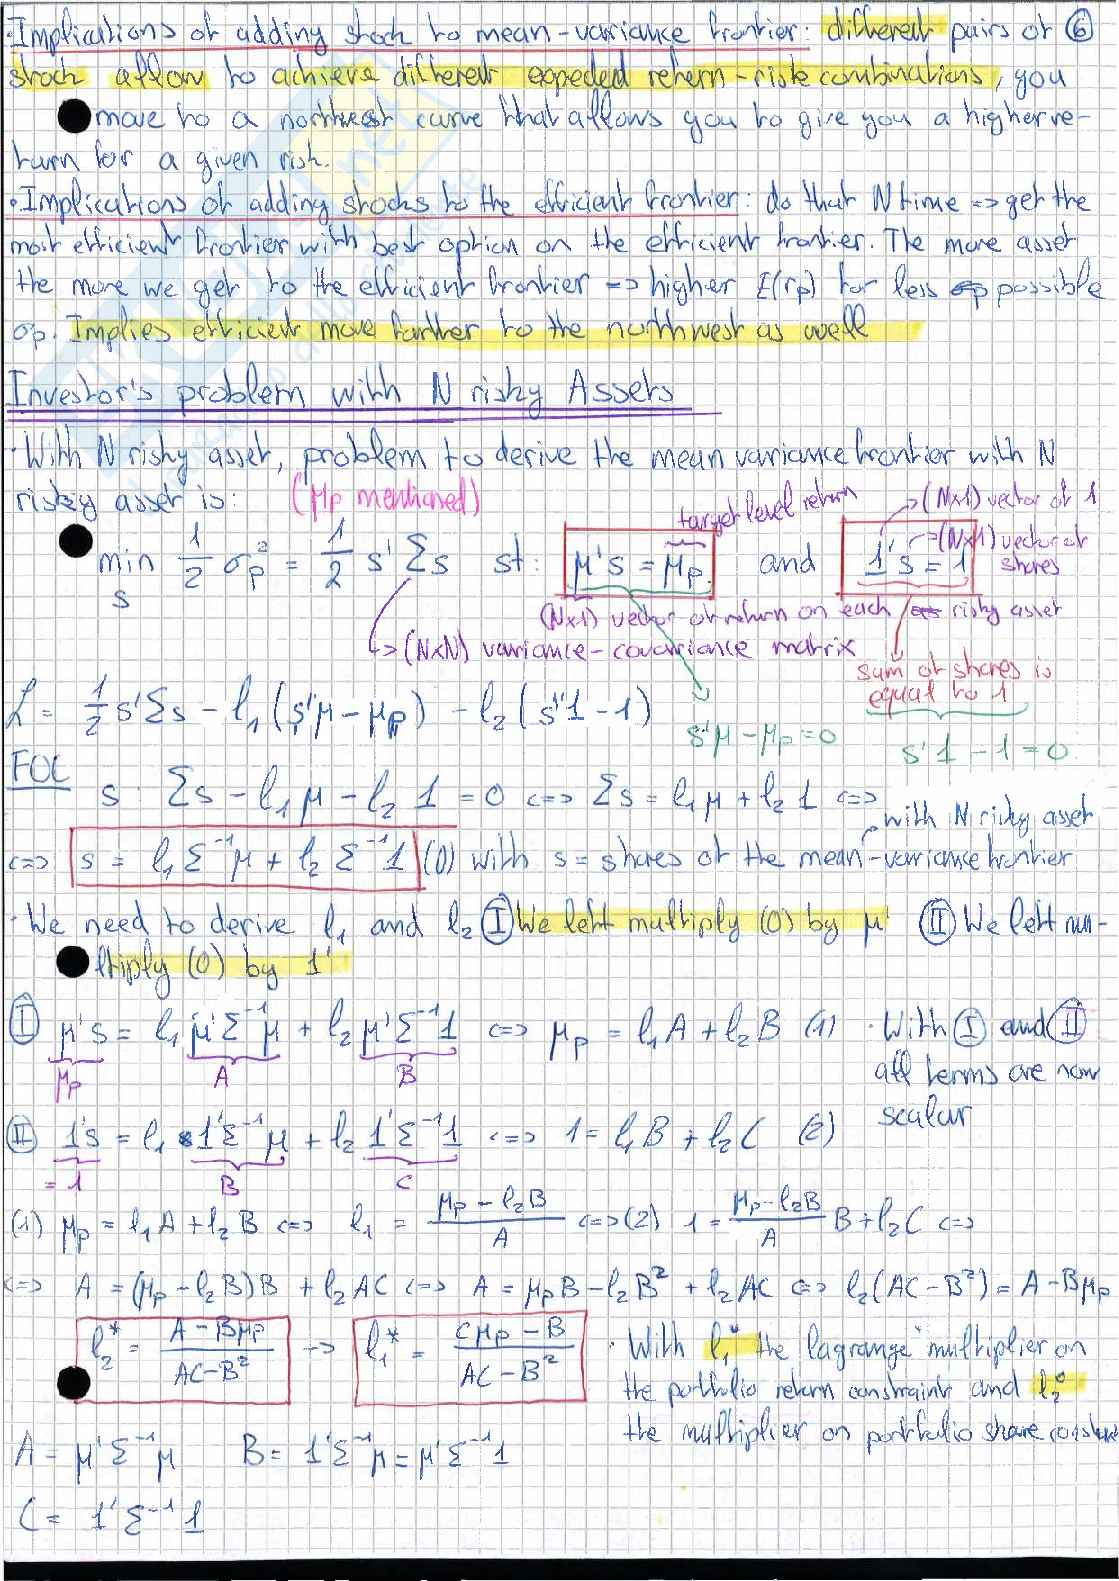 · Implications of adding stock to mean-variance frontier: different pairs of ⑥
stock allow to achieve different expected return-risk combinations, you
move to a northwest curve that allows you to give you a higher re-
turn for a given risk.
• Implications of adding stocks to the efficient frontier: do that N time => get the
most efficient frontier with best option on the efficient frontier. The more asset
the more we get to the efficient frontier => higher E(rp) for less possible
σp. Implies efficient move farther to the northwest as well
Investor's problem with N risky Assets
· With N risky asset, problem to derive the mean variance frontier with N
risky asset is: (μp mentioned)
target level return
→ (N×1) vector of 1
min 1/2 σp² = 1/2 s' Σs st: μ's = μp and 1's = 1
s
→ (N×1) vector of shares
(N×1) vector of return on each risky asset
→ (N×N) variance-covariance matrix
sum of shares is
equal to 1
L = 1/2 s'Σs - l₁(s'μ - μp) - l₂(s'1 - 1)
s'μ - μp = 0
s'1 - 1 = 0
FOC
s: Σs - l₁μ - l₂1 = 0 <=> Σs = l₁μ + l₂1 <=>
with N risky asset
<=> s = l₁Σ⁻¹μ + l₂Σ⁻¹1 (0) with s = shares of the mean-variance frontier
· We need to derive l₁ and l₂ Ⓘ We left multiply (0) by μ' Ⅱ We left mu-
ltiply (0) by 1'
Ⓘ μ's = l₁μ'Σ⁻¹μ + l₂μ'Σ⁻¹1 <=> μp = l₁A + l₂B (1) · With Ⓘ and Ⅱ
μp A B
all terms are now
scalar
Ⅱ 1's = l₁1'Σ⁻¹μ + l₂1'Σ⁻¹1 <=> 1 = l₁B + l₂C (2)
= 1 B C
(1) μp = l₁A + l₂B <=> l₁ = (μp - l₂B)/A <=> (2) 1 = (μp - l₂B)/A B + l₂C <=>
<=> A = (μp - l₂B)B + l₂AC <=> A = μpB - l₂B² + l₂AC <=> l₂(AC - B²) = A - Bμp
l₂* = (A - Bμp)/(AC - B²) → l₁* = (Cμp - B)/(AC - B²) · With l₁* the lagrange multiplier on
the portfolio return constraint and l₂*
the multiplier on portfolio share
A = μ'Σ⁻¹μ B = 1'Σ⁻¹μ = μ'Σ⁻¹1
C = 1'Σ⁻¹1